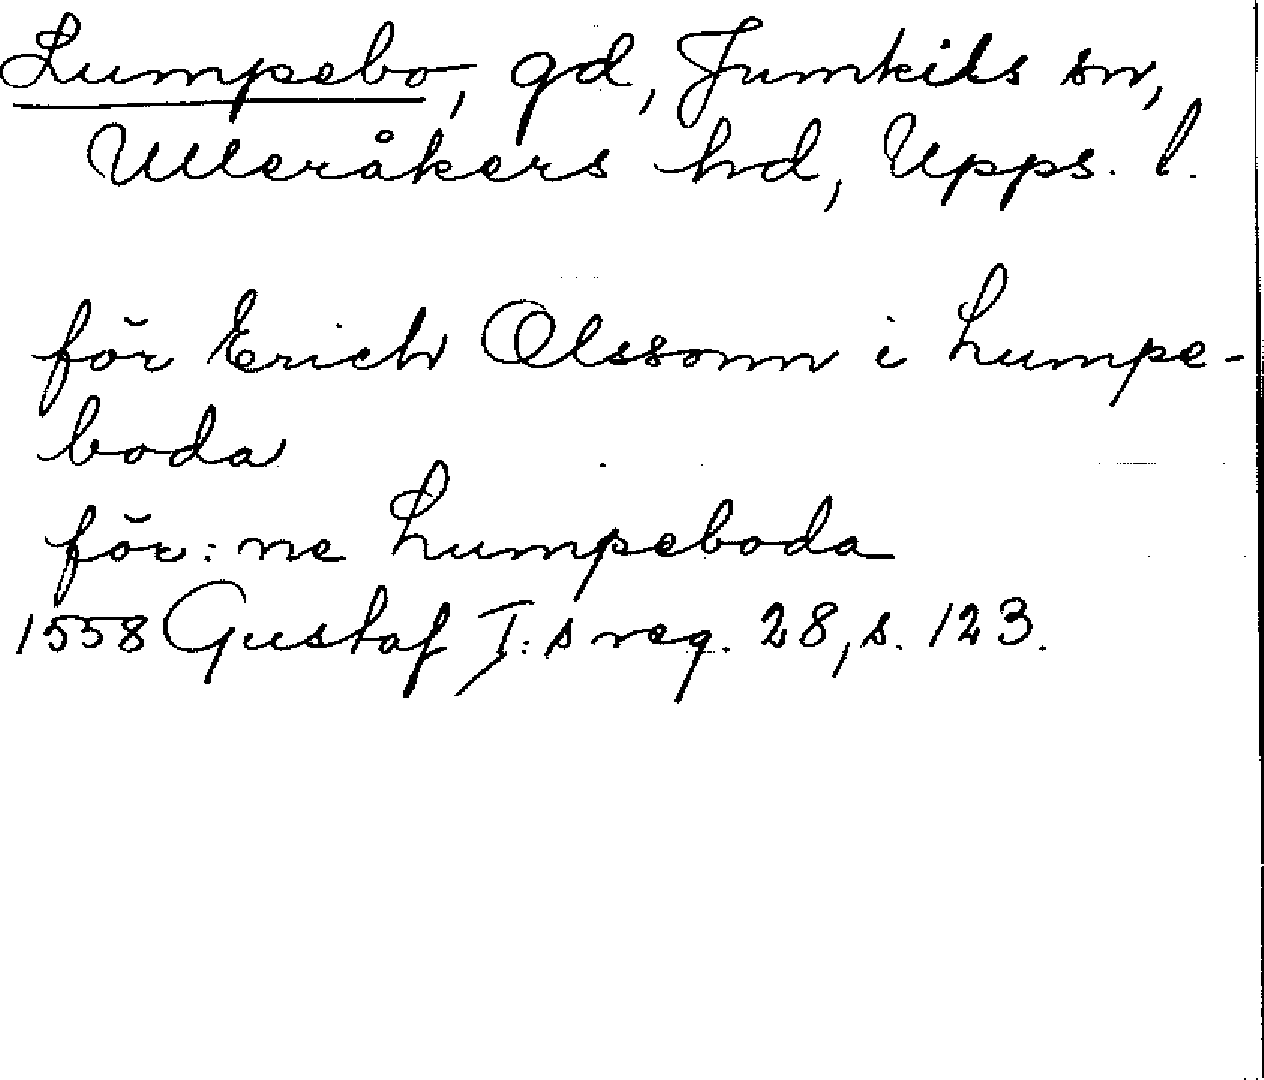 Lumpebo, gd, Jumkils sn,
Ulleråkers hd, Upps. l.
för Erich Olssonn i Lumpe-
boda
för:ne Lumpeboda
1558 Gustaf I:s reg. 28, s. 123.